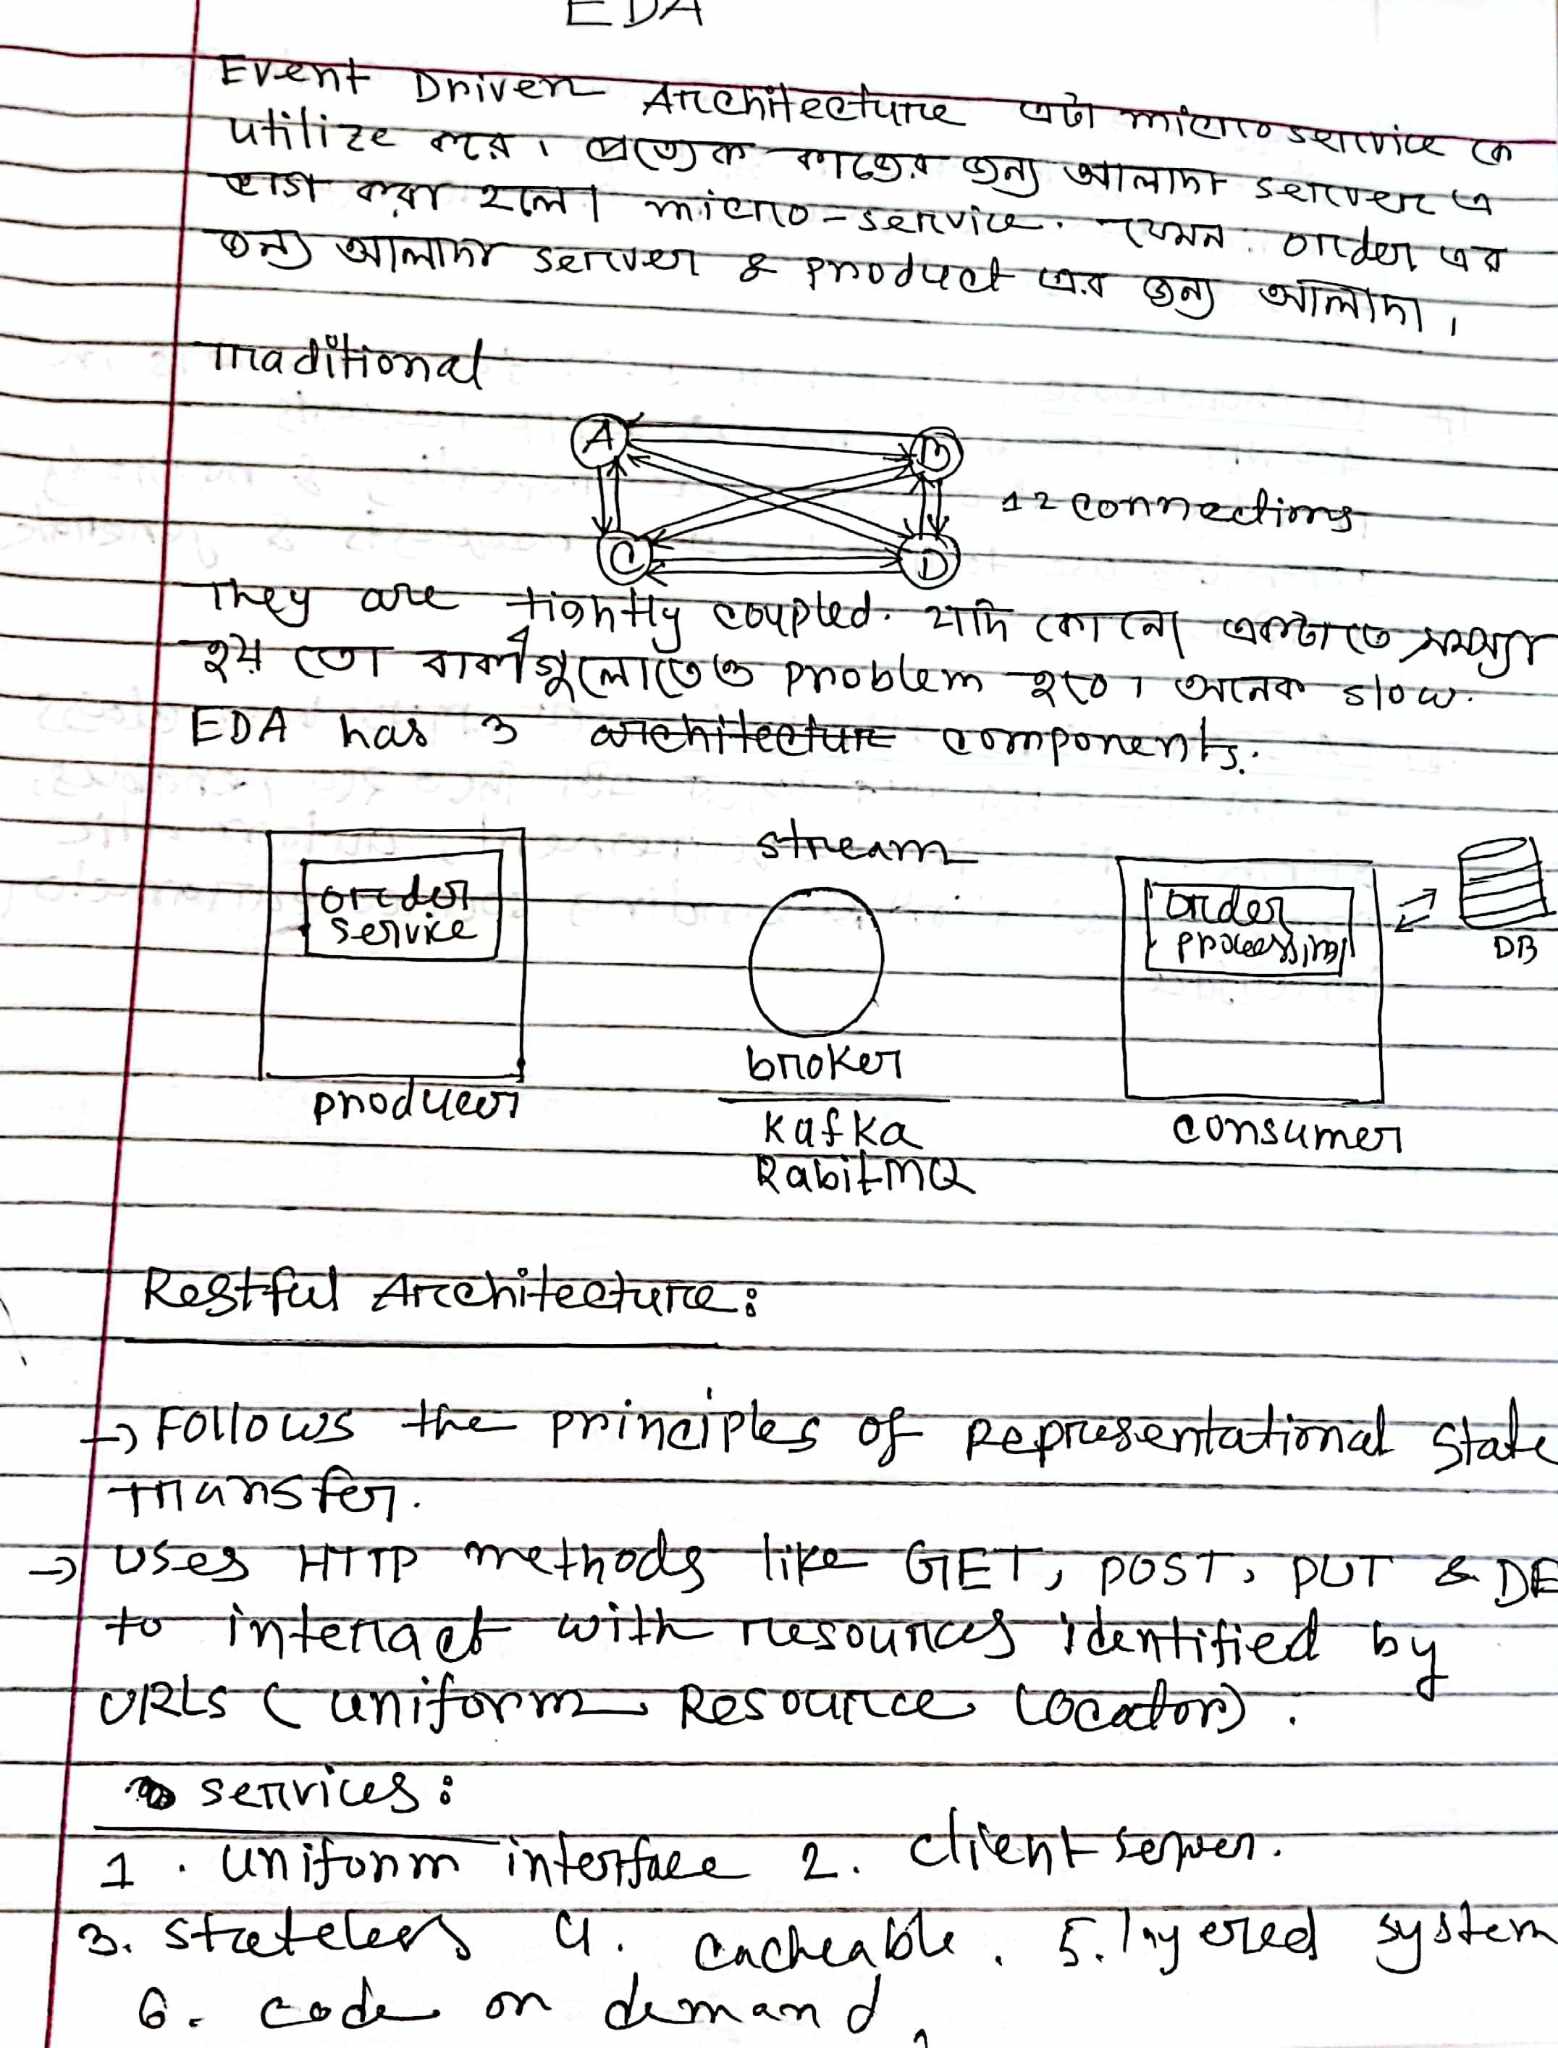 EDA
Event Driven Architecture এটা microservice কে
utilize করে। প্রত্যেক কাজের জন্য আলাদা server এ
ভাগ করা হলো micro-service. যেমন: order এর
জন্য আলাদা server & product এর জন্য আলাদা।
Traditional
A B
12 connections
C D
They are tightly coupled. যদি কোনো একটাতে সমস্যা
হয় তো বাকীগুলোতেও problem হবে। অনেক slow.
EDA has 3 architecture components.
stream
order
service
order
processing
DB
broker
producer
Kafka
consumer
RabitMQ
Restful Architecture:
→ Follows the principles of Representational State
Transfer.
→ Uses HTTP methods like GET, POST, PUT & DE
to interact with resources identified by
URLs (Uniform Resource Locator).
services:
1. uniform interface 2. client server.
3. stateless 4. cacheable. 5. layered system
6. code on demand,